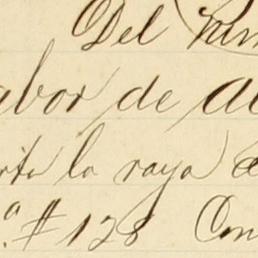 Del
abor de
rte la raya
ª # 128 Con